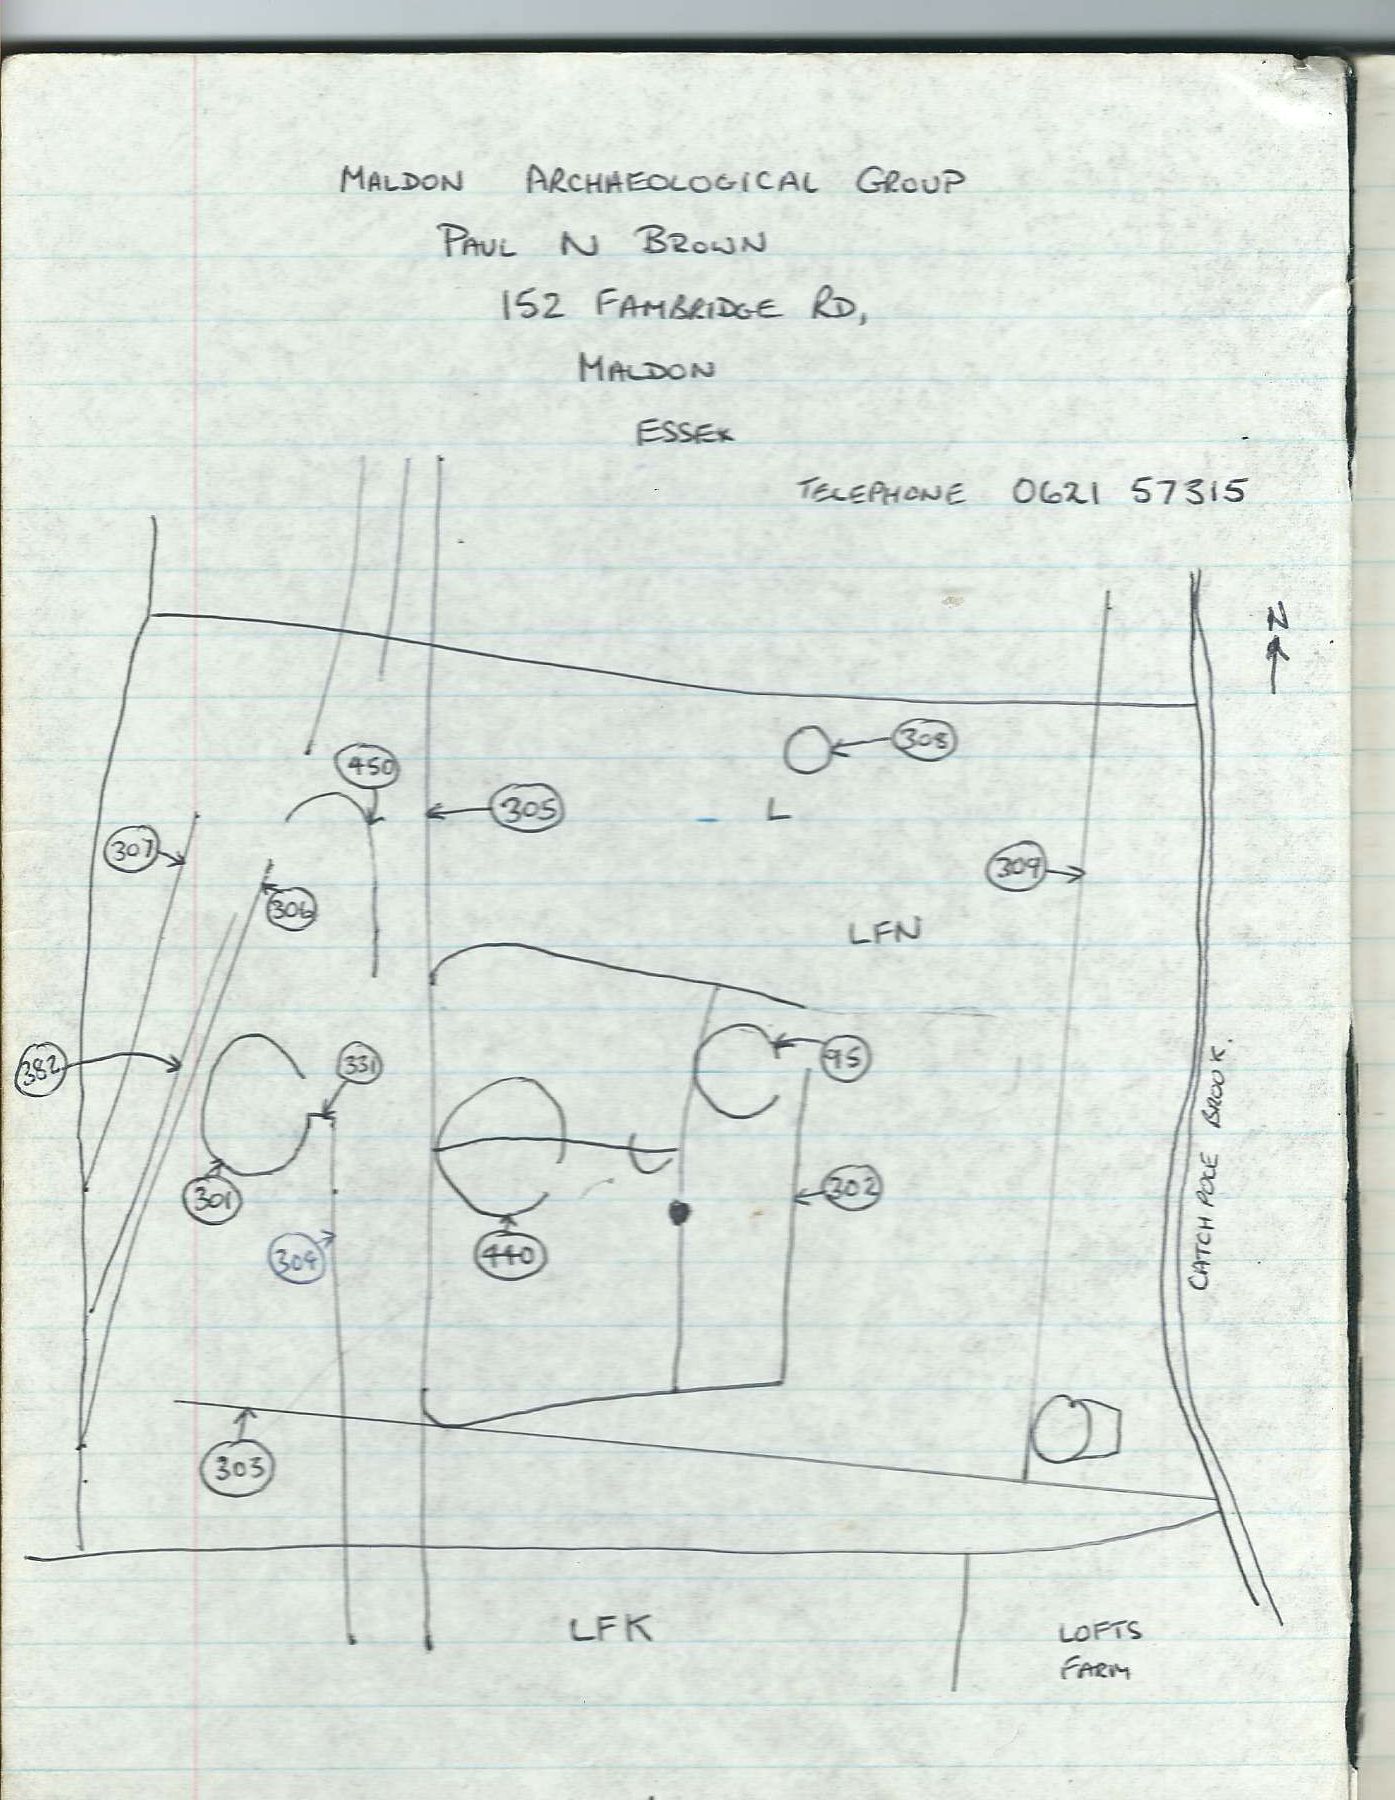 MALDON ARCHAEOLOGICAL GROUP
PAUL N BROWN
152 FAMBRIDGE RD,
MALDON
ESSEX
TELEPHONE 0621 57315
N
308
450
305
L
307
309
306
LFN
382
331
95
CATCHPOLE BROOK.
301
302
304
440
303
LFK
LOFTS
FARM